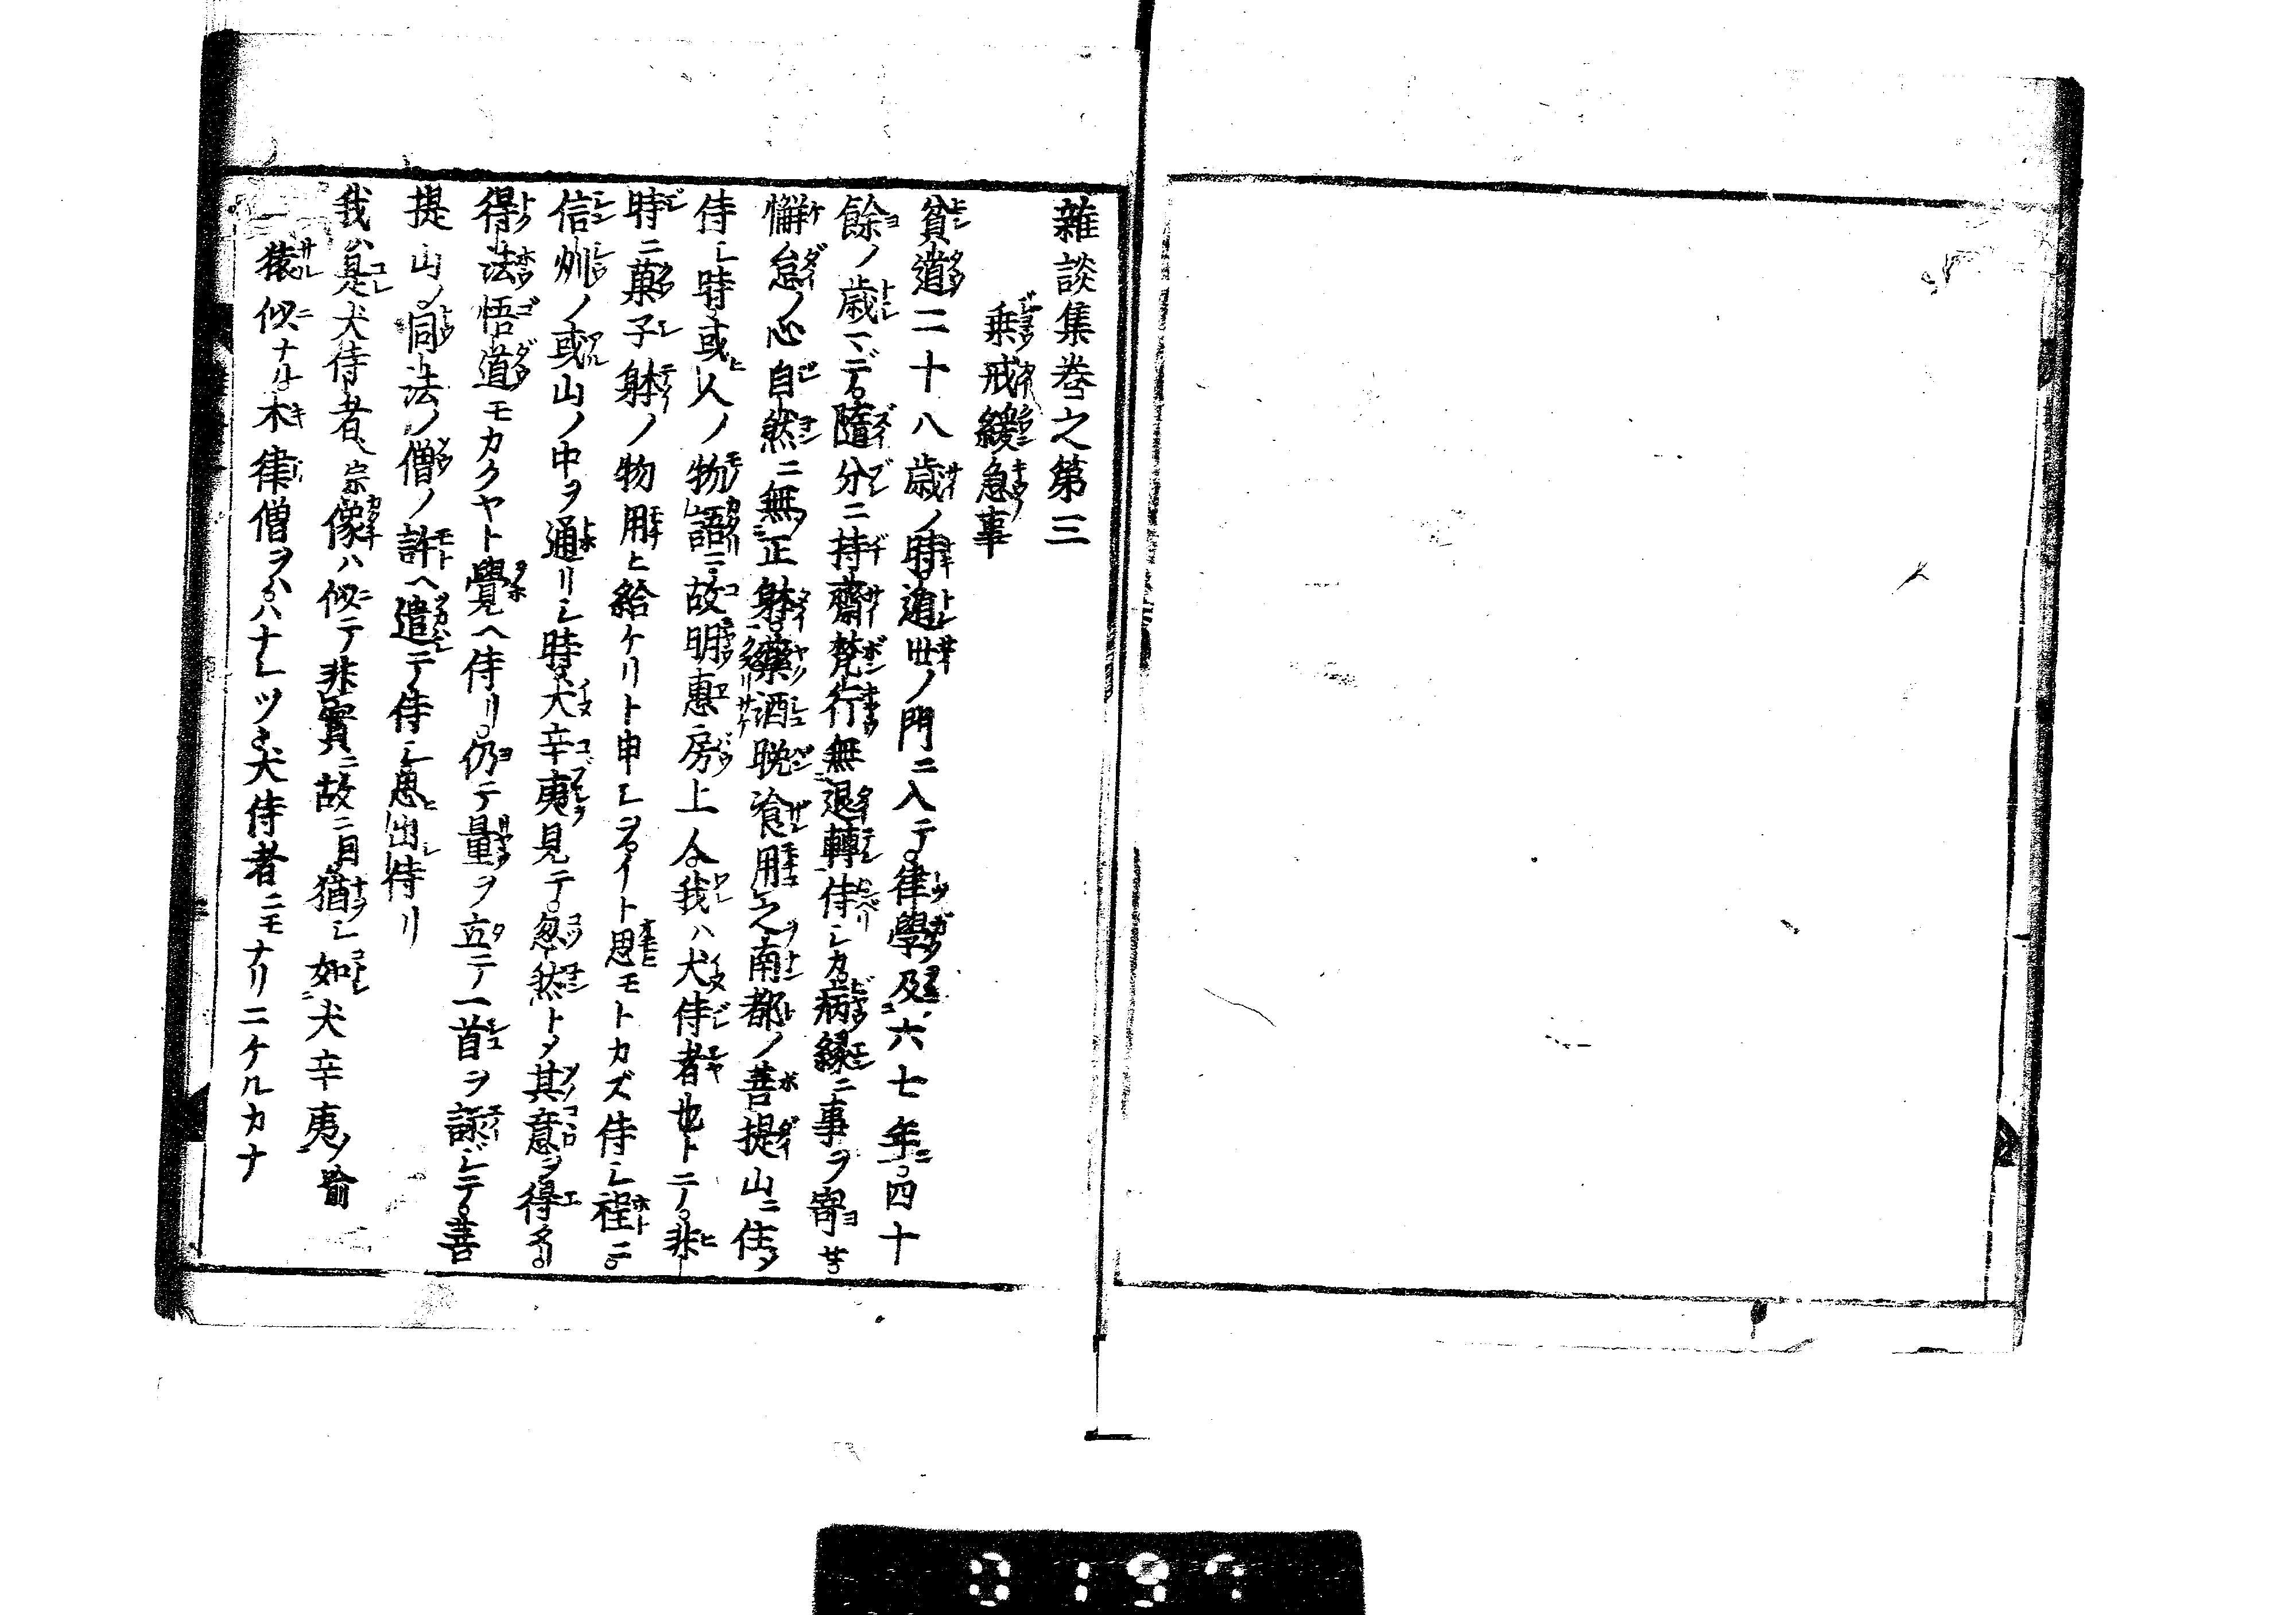 雜談集巻之第三
乗戒緩急事
貧道二十八歳ノ時遁世ノ門ニ入テ律學及六七年ニ四十
餘ノ歳マデ隨分ニ持齋梵行無退轉侍シカ病縁ニ事ヲ寄セ
懈怠ノ心自然ニ無正躰藥酒晩飡用之南都ノ菩提山ニ住
侍シ時或人ノ物語ニ故明惠房上人我ハ犬侍者也トニテ非
時ニ菓子躰ノ物用ヒ給ケリト申シヲイト思モトカズ侍シ程ニ
信州ノ或山ノ中ヲ通リシ時犬辛夷見テ忽然トメ其意ヲ得タリ
得法悟道モカクヤト覺ヘ侍リ仍テ量ヲ立テ一首ヲ詠ジテ菩
提山ノ同法ノ僧ノ許ヘ遣テ侍シ思出侍リ
我ハ是犬侍者宗像ハ似テ非實ニ故ニ因猶シ如犬辛夷ノ喩
猿似ナル木律僧ヲハナレツヽ犬侍者ニモナリニケルカナ
0197